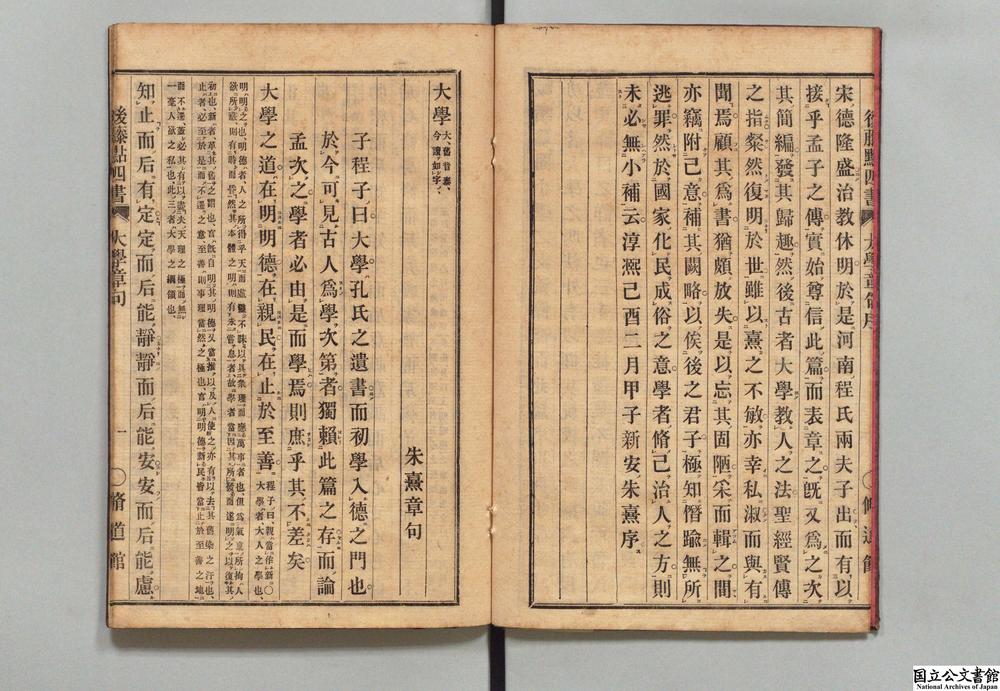 後藤點四書 大學章句序 脩道館
宋德隆盛治敎休明於是河南程氏兩夫子出而有以
接乎孟子之傳實始尊信此篇而表章之旣又爲之次
其簡編發其歸趣然後古者大學敎人之法聖經賢傳
之指粲然復明於世雖以熹之不敏亦幸私淑而與有
聞焉顧其爲書猶頗放失是以忘其固陋采而輯之間
亦竊附己意補其闕略以俟後之君子極知僭踰無所
逃罪然於國家化民成俗之意學者脩己治人之方則
未必無小補云淳熙己酉二月甲子新安朱熹序
朱熹章句
大學 大舊音泰
今讀如字
子程子曰大學孔氏之遺書而初學入德之門也
於今可見古人爲學次第者獨賴此篇之存而論
孟次之學者必由是而學焉則庶乎其不差矣
大學之道在明明德在親民在止於至善 程子曰親當作新○
大學者大人之學也
明明之也明德者人之所得乎天而虛靈不昧以具衆理而應萬事者也但爲氣稟所拘人
欲所蔽則有時而昏然其本體之明則有未嘗息者故學者當因其所發而遂明之以復其
初也新者革其舊之謂也言旣自明其明德又當推以及人使之亦有以去其舊染之汙也
止者必至於是而不遷之意至善則事理當然之極也言明明德新民皆當止於至善之地
而不遷蓋必其有以盡夫天理之極而無
一毫人欲之私也此三者大學之綱領也
知止而后有定定而后能靜靜而后能安安而后能慮
後藤點四書 大學章句 一 脩道館
国立公文書館
National Archives of Japan